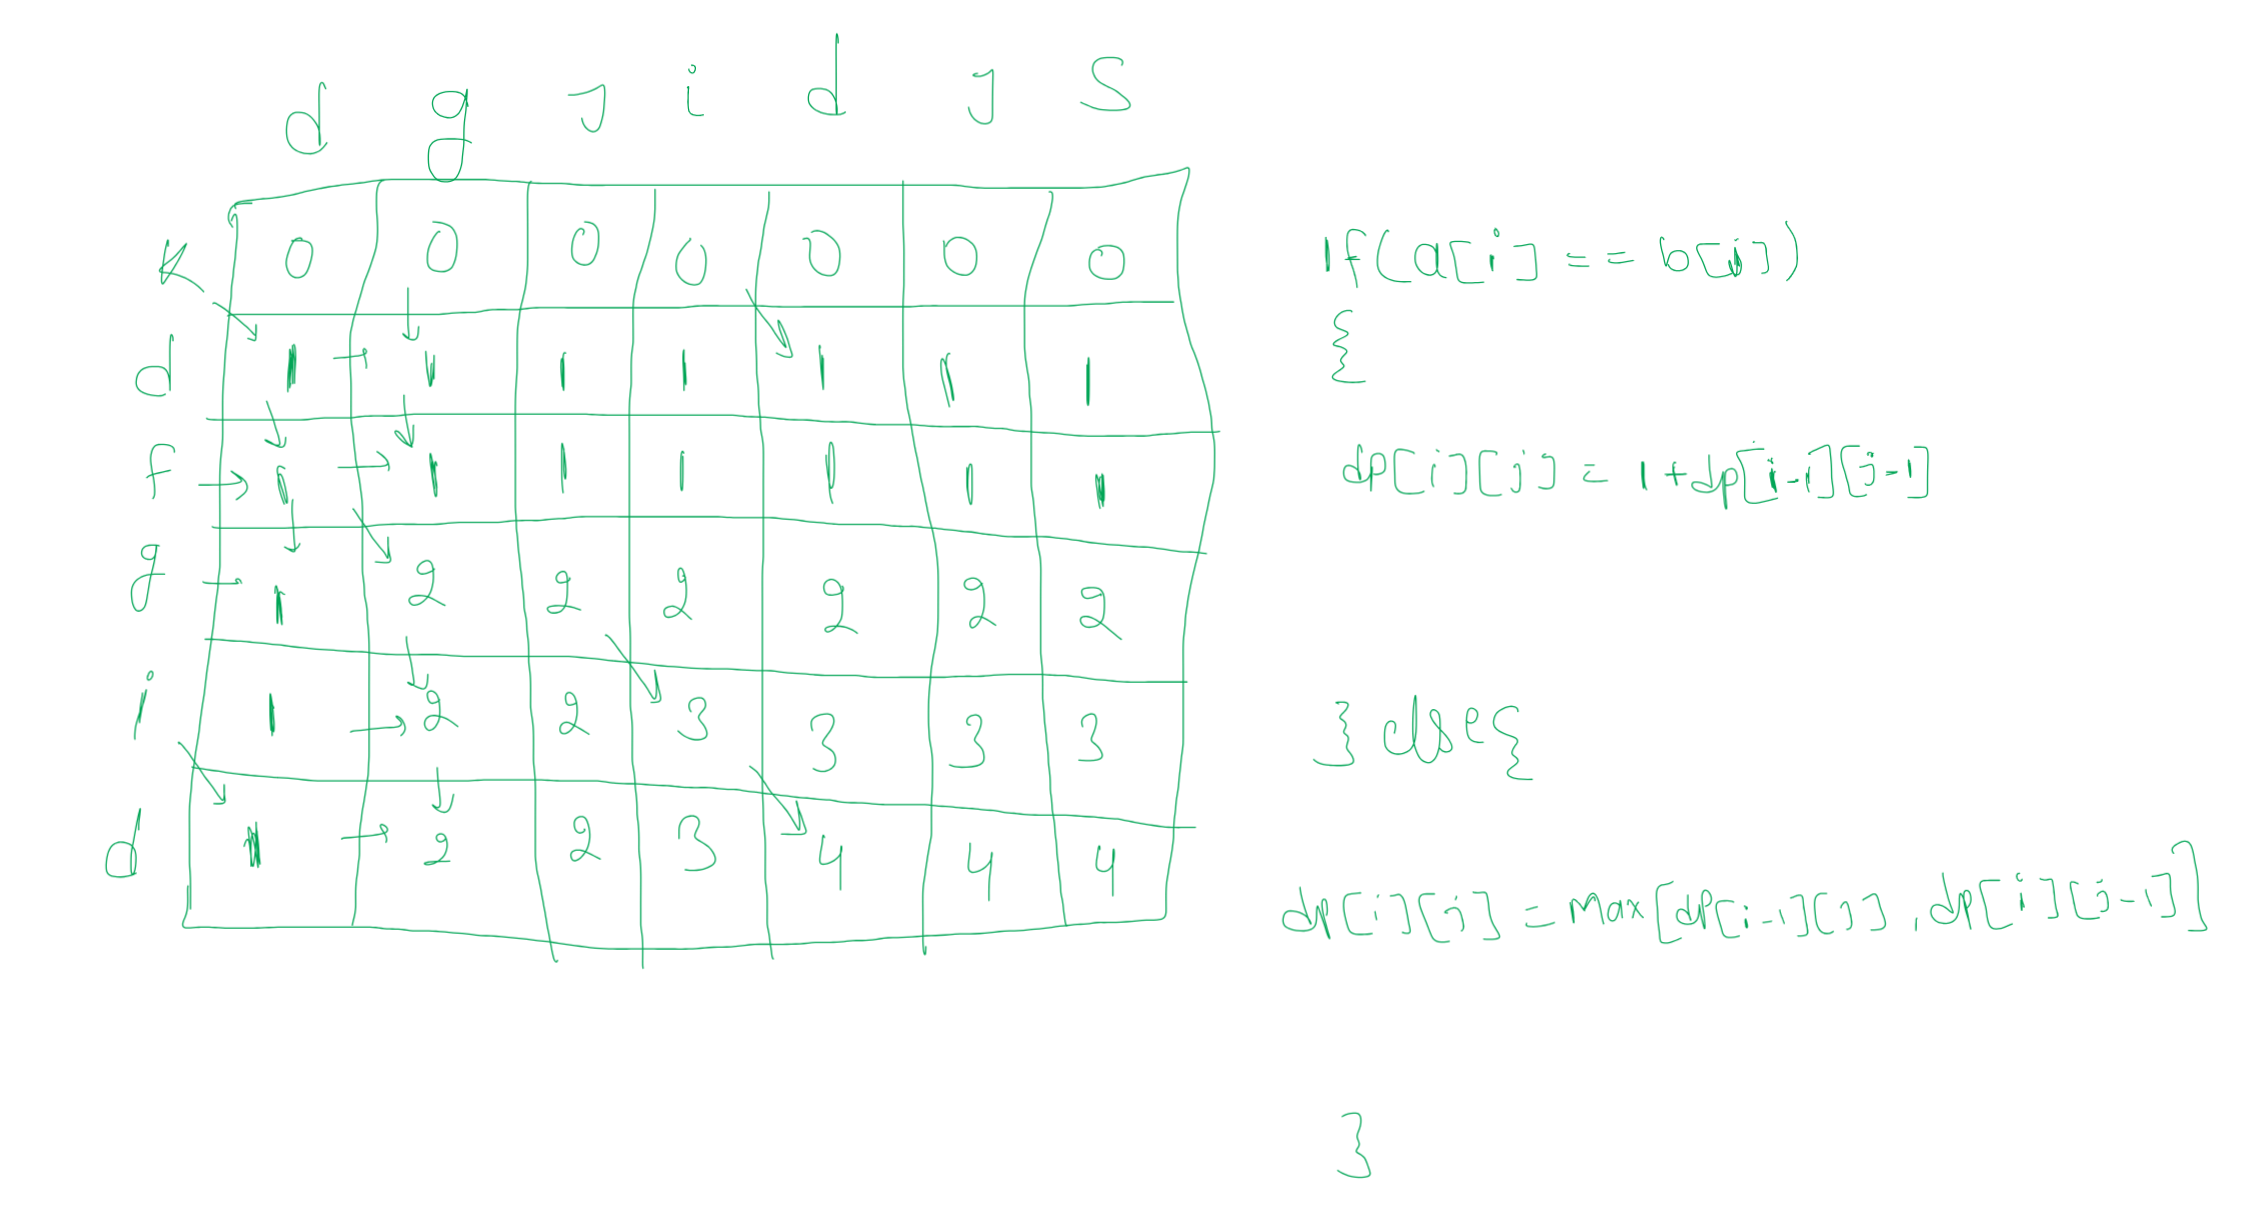 d g j i d j s
k 0 0 0 0 0 0 0
d 1 1 1 1 1 1 1
f 1 1 1 1 1 1 1
g 1 2 2 2 2 2 2
i 1 2 2 3 3 3 3
d 1 2 2 3 4 4 4
if(a[i] == b[j])
{
dp[i][j] = 1+dp[i-1][j-1]
} else{
dp[i][j] = max[dp[i-1][j], dp[i][j-1]]
}